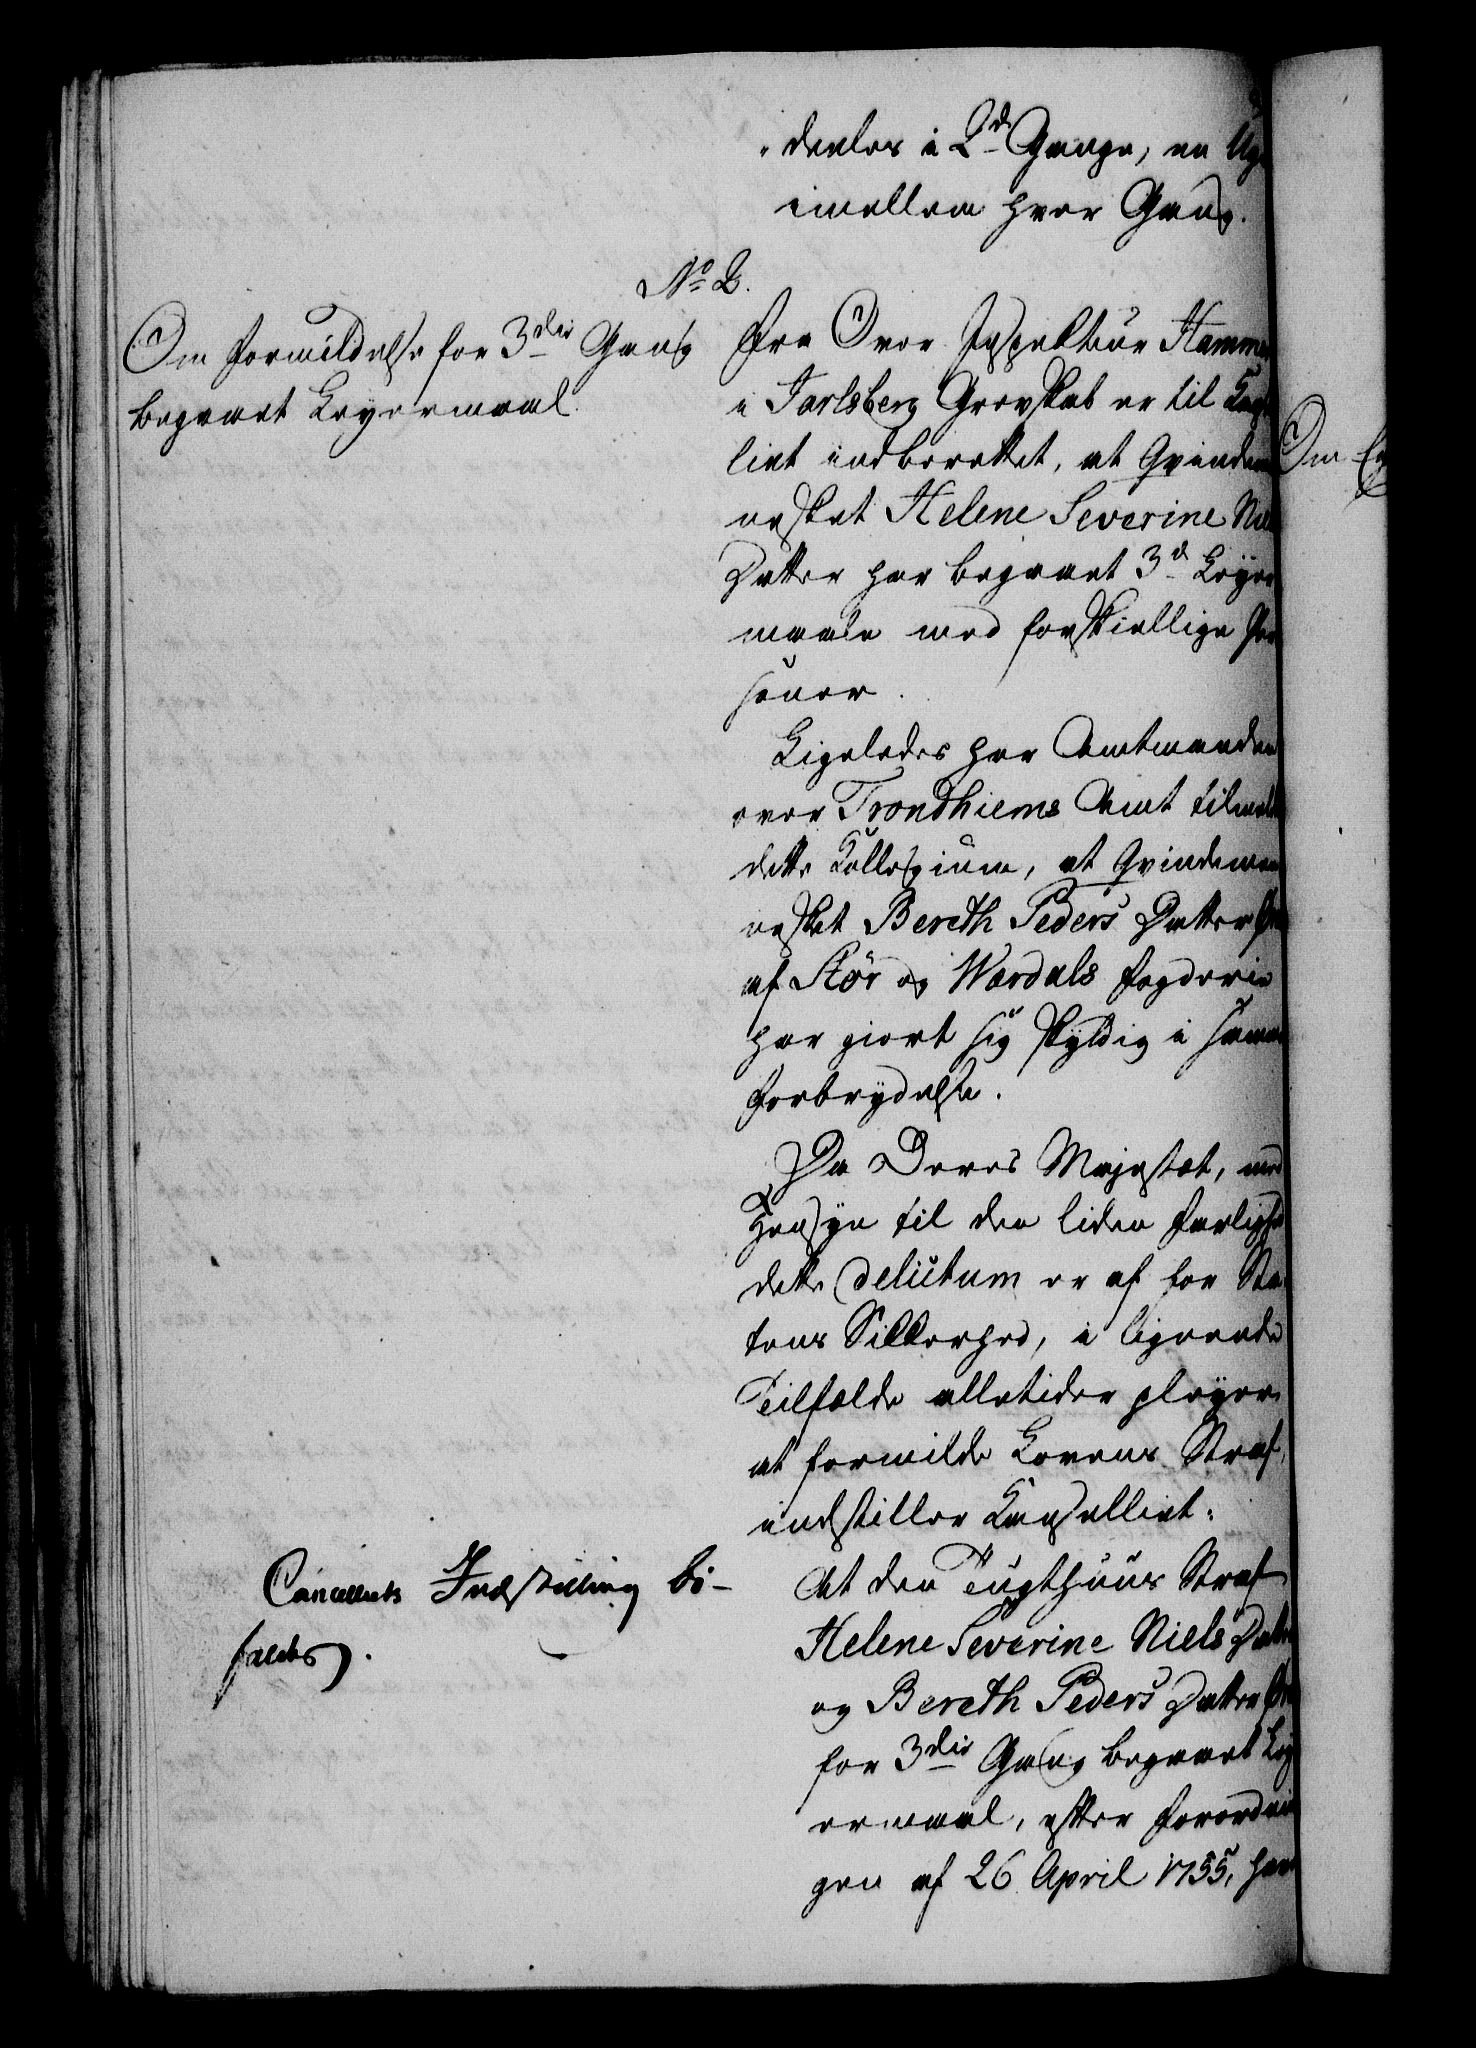 deelse i 2de Gange, en Uge
imellem hver Gang.
No 2.
Om Formildelse for 3die Gang
begaaet Leyermaal.
Fra Over Inspekteur Hammer
i Jarlsberg Grevskab er til Kan
liet indberettet, at Qvindem
nesket Helene Severine Niels
Datter har begaaet 3de Leyer
maale med forskiellige Per
soner.
Ligeledes har Amtmanden
over Trondhiems Amt tilmeldt
dette Kollegium, at Qvindemen
nesket Bereth Peders Datter
af Stør og Værdals Fogderie
har giort sig skyldig i samme
Forbrydelse.
Da Deres Majestæt, med
Hensyn til den liden Farlighed
dette Delictum er af for Sta
tens Sikkerhed, i lignende
Tilfælde alletider pleyer
at formilde Lovens Straf,
indstiller Kanselliet:
Cancelliets Indstilling bi-
faldes.
At den Tugthuus Straf
Helene Severine Niels Datter
og Bereth Peders Datter
for 3die Gang begaaet Ley
ermaal, efter Forordnin
gen af 26 April 1755, har
Om